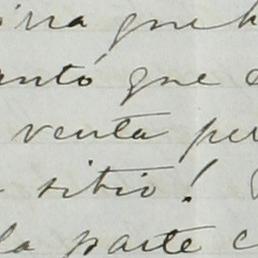 que
antó que
venta per
sitio!
la parte c